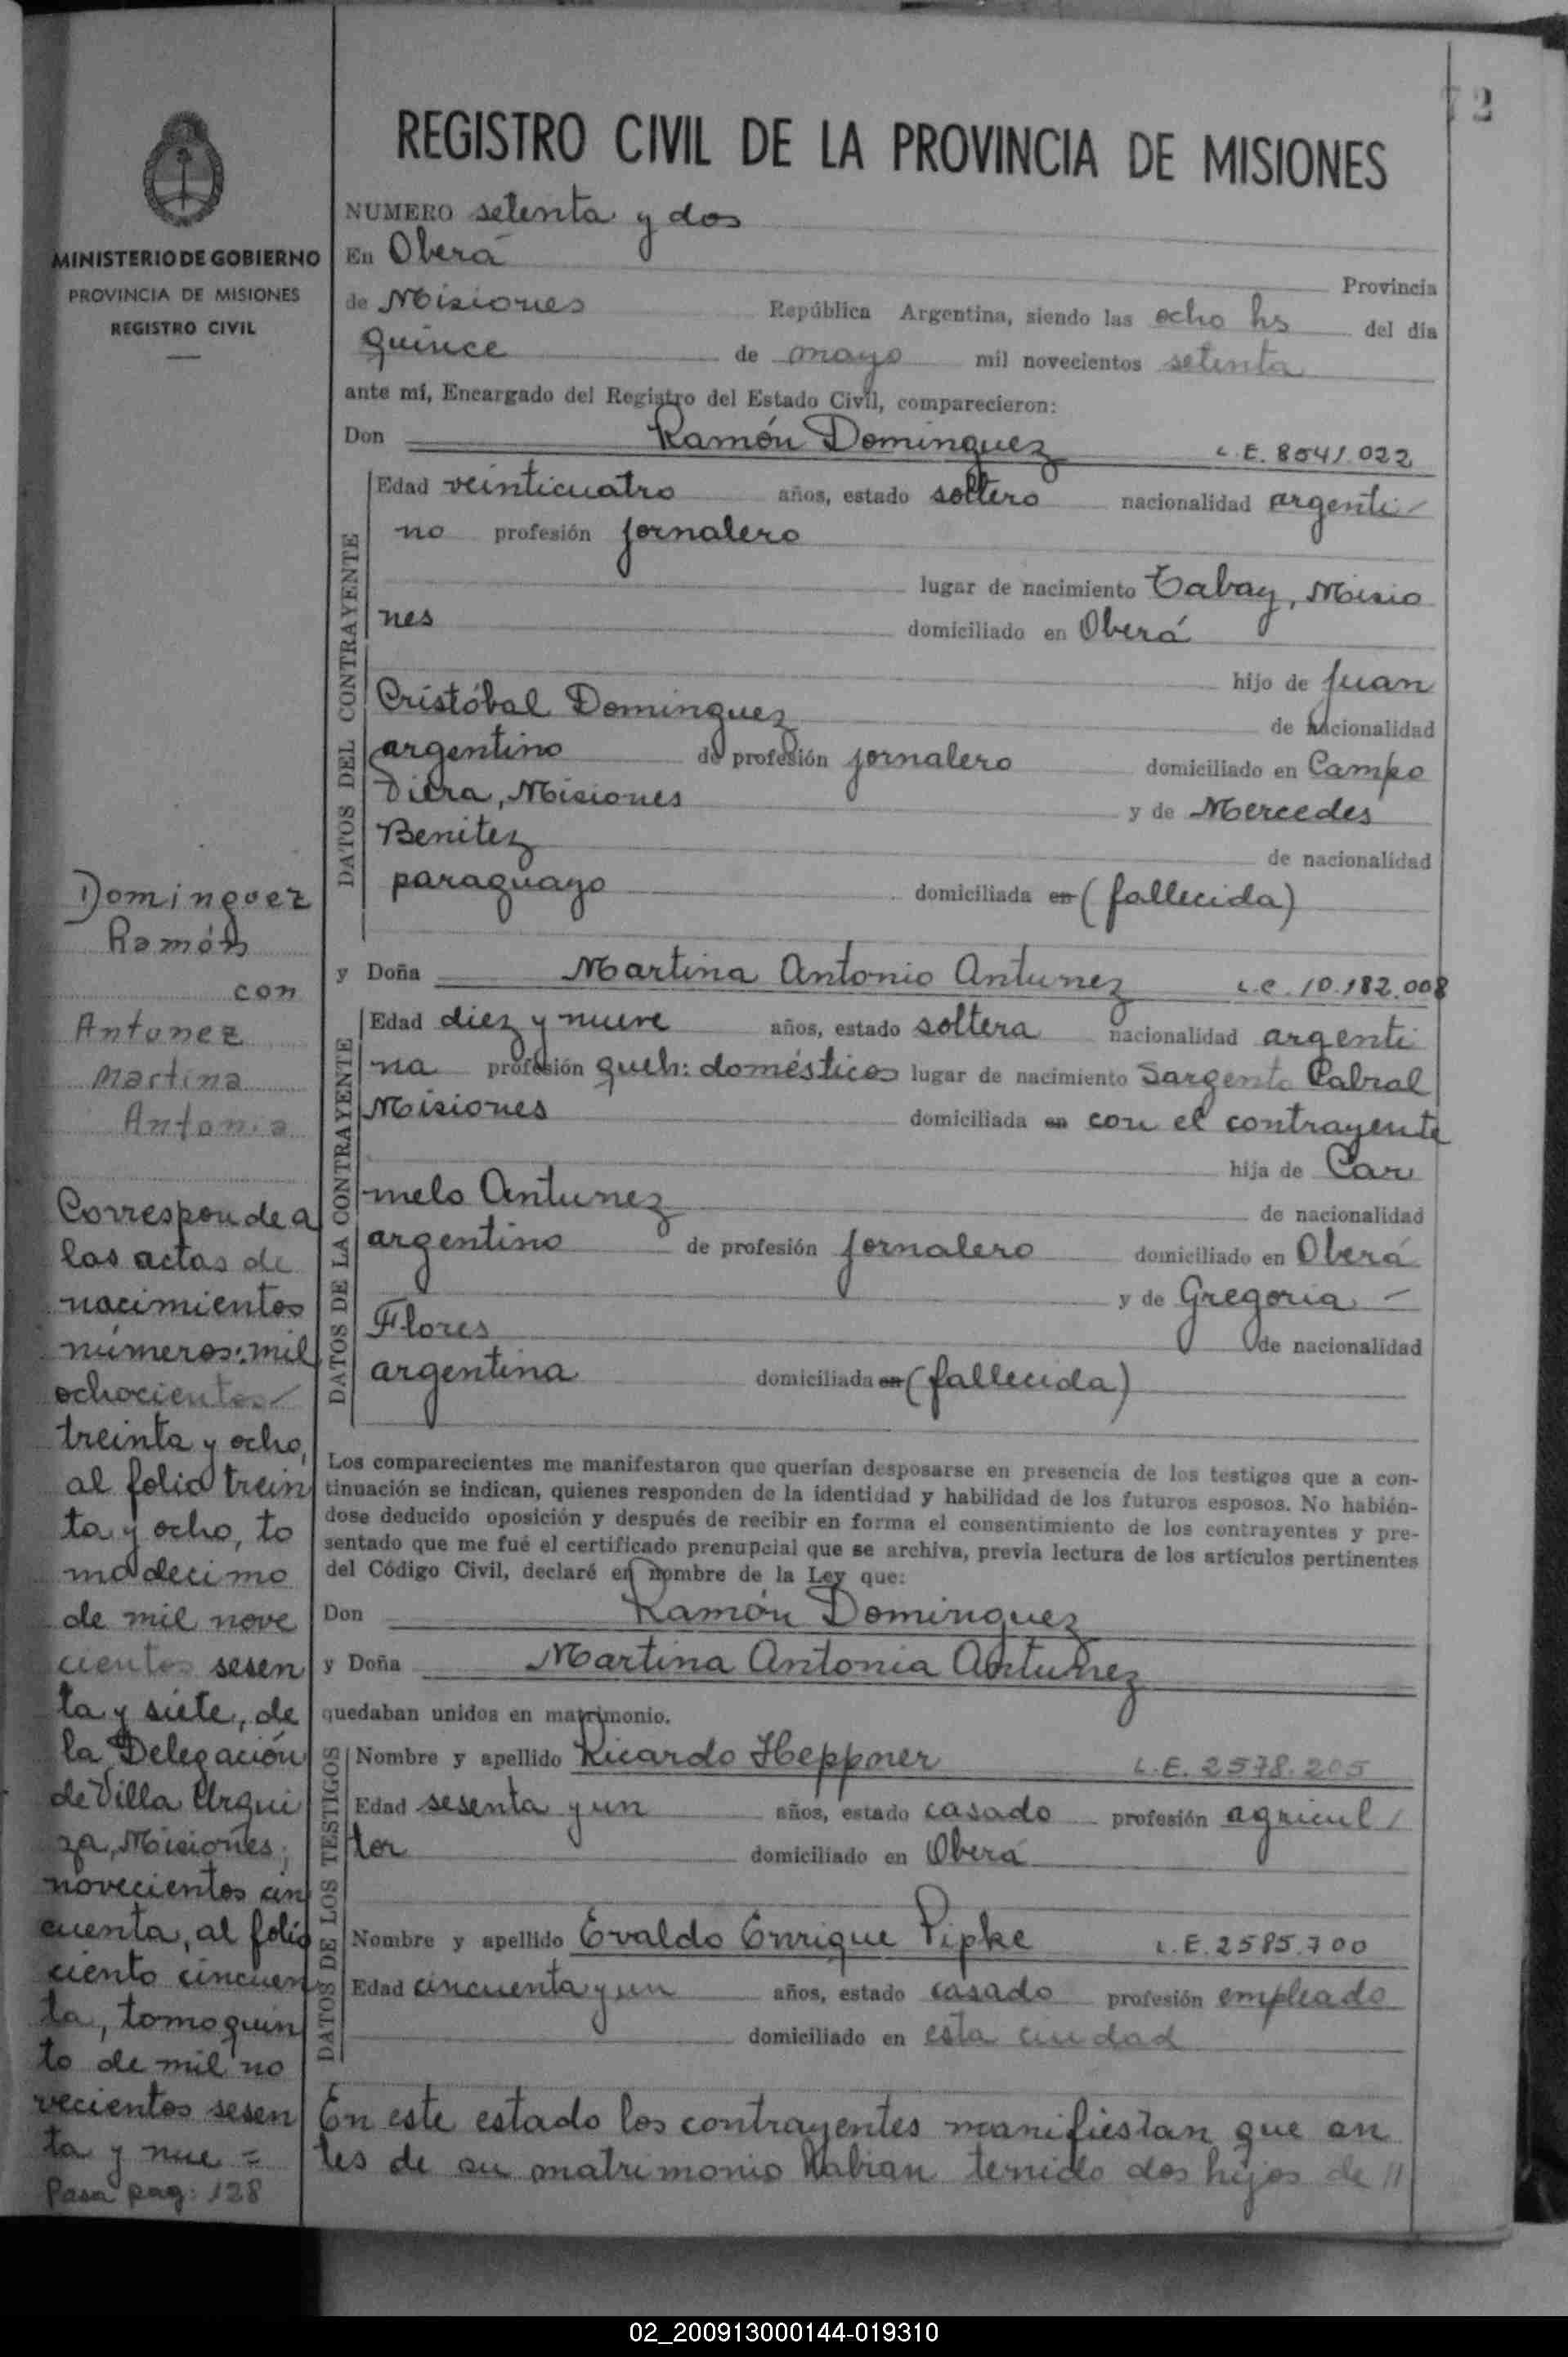 72
REGISTRO CIVIL DE LA PROVINCIA DE MISIONES
MINISTERIO DE GOBIERNO
PROVINCIA DE MISIONES
REGISTRO CIVIL
NUMERO setenta y dos
En Oberá
Provincia
de Misiones República Argentina, siendo las ocho hs del día
quince de mayo mil novecientos setenta
ante mí, Encargado del Registro del Estado Civil, comparecieron:
Don Ramón Dominguez L.E. 8541.022
DATOS DEL CONTRAYENTE
Edad veinticuatro años, estado soltero nacionalidad argenti
no profesión jornalero
lugar de nacimiento Tabay, Misio
nes domiciliado en Oberá
hijo de Juan
Cristóbal Dominguez de nacionalidad
argentino de profesión jornalero domiciliado en Campo
Viera, Misiones y de Mercedes
Benitez de nacionalidad
paraguayo domiciliada en (fallecida)
y Doña Martina Antonio Antunez L.C. 10.182.008
DATOS DE LA CONTRAYENTE
Edad diez y nueve años, estado soltera nacionalidad argenti
na profesión queh: domésticos lugar de nacimiento Sargento Cabral
Misiones domiciliada en con el contrayente
hija de Car
melo Antunez de nacionalidad
argentino de profesión jornalero domiciliado en Oberá
y de Gregoria -
Flores de nacionalidad
argentina domiciliada en (fallecida)
Los comparecientes me manifestaron que querían desposarse en presencia de los testigos que a con-
tinuación se indican, quienes responden de la identidad y habilidad de los futuros esposos. No habién-
dose deducido oposición y después de recibir en forma el consentimiento de los contrayentes y pre-
sentado que me fué el certificado prenupcial que se archiva, previa lectura de los artículos pertinentes
del Código Civil, declaré en nombre de la Ley que:
Don Ramón Dominguez
y Doña Martina Antonia Antunez
quedaban unidos en matrimonio.
DATOS DE LOS TESTIGOS
Nombre y apellido Ricardo Heppner L.E. 2578.205
Edad sesenta y un años, estado casado profesión agricul
tor domiciliado en Oberá
Nombre y apellido Evaldo Enrique Pipke L.E. 2585.700
Edad cincuenta y un años, estado casado profesión empleado
domiciliado en esta ciudad
En este estado los contrayentes manifiestan que an
tes de su matrimonio habian tenido dos hijos de //
Dominguez
Ramón
con
Antunez
Martina
Antonia
Corresponde a
las actas de
nacimientos
números: mil
ochocientos
treinta y ocho,
al folio trein
ta y ocho, to
mo decimo
de mil nove
cientos sesen
ta y siete, de
la Delegación
de Villa Urqui
za, Misiones;
novecientos cin
cuenta, al folio
ciento cincuen
ta, tomo quin
to de mil no
vecientos sesen
ta y nue =
Pasa pag: 128
02_200913000144-019310